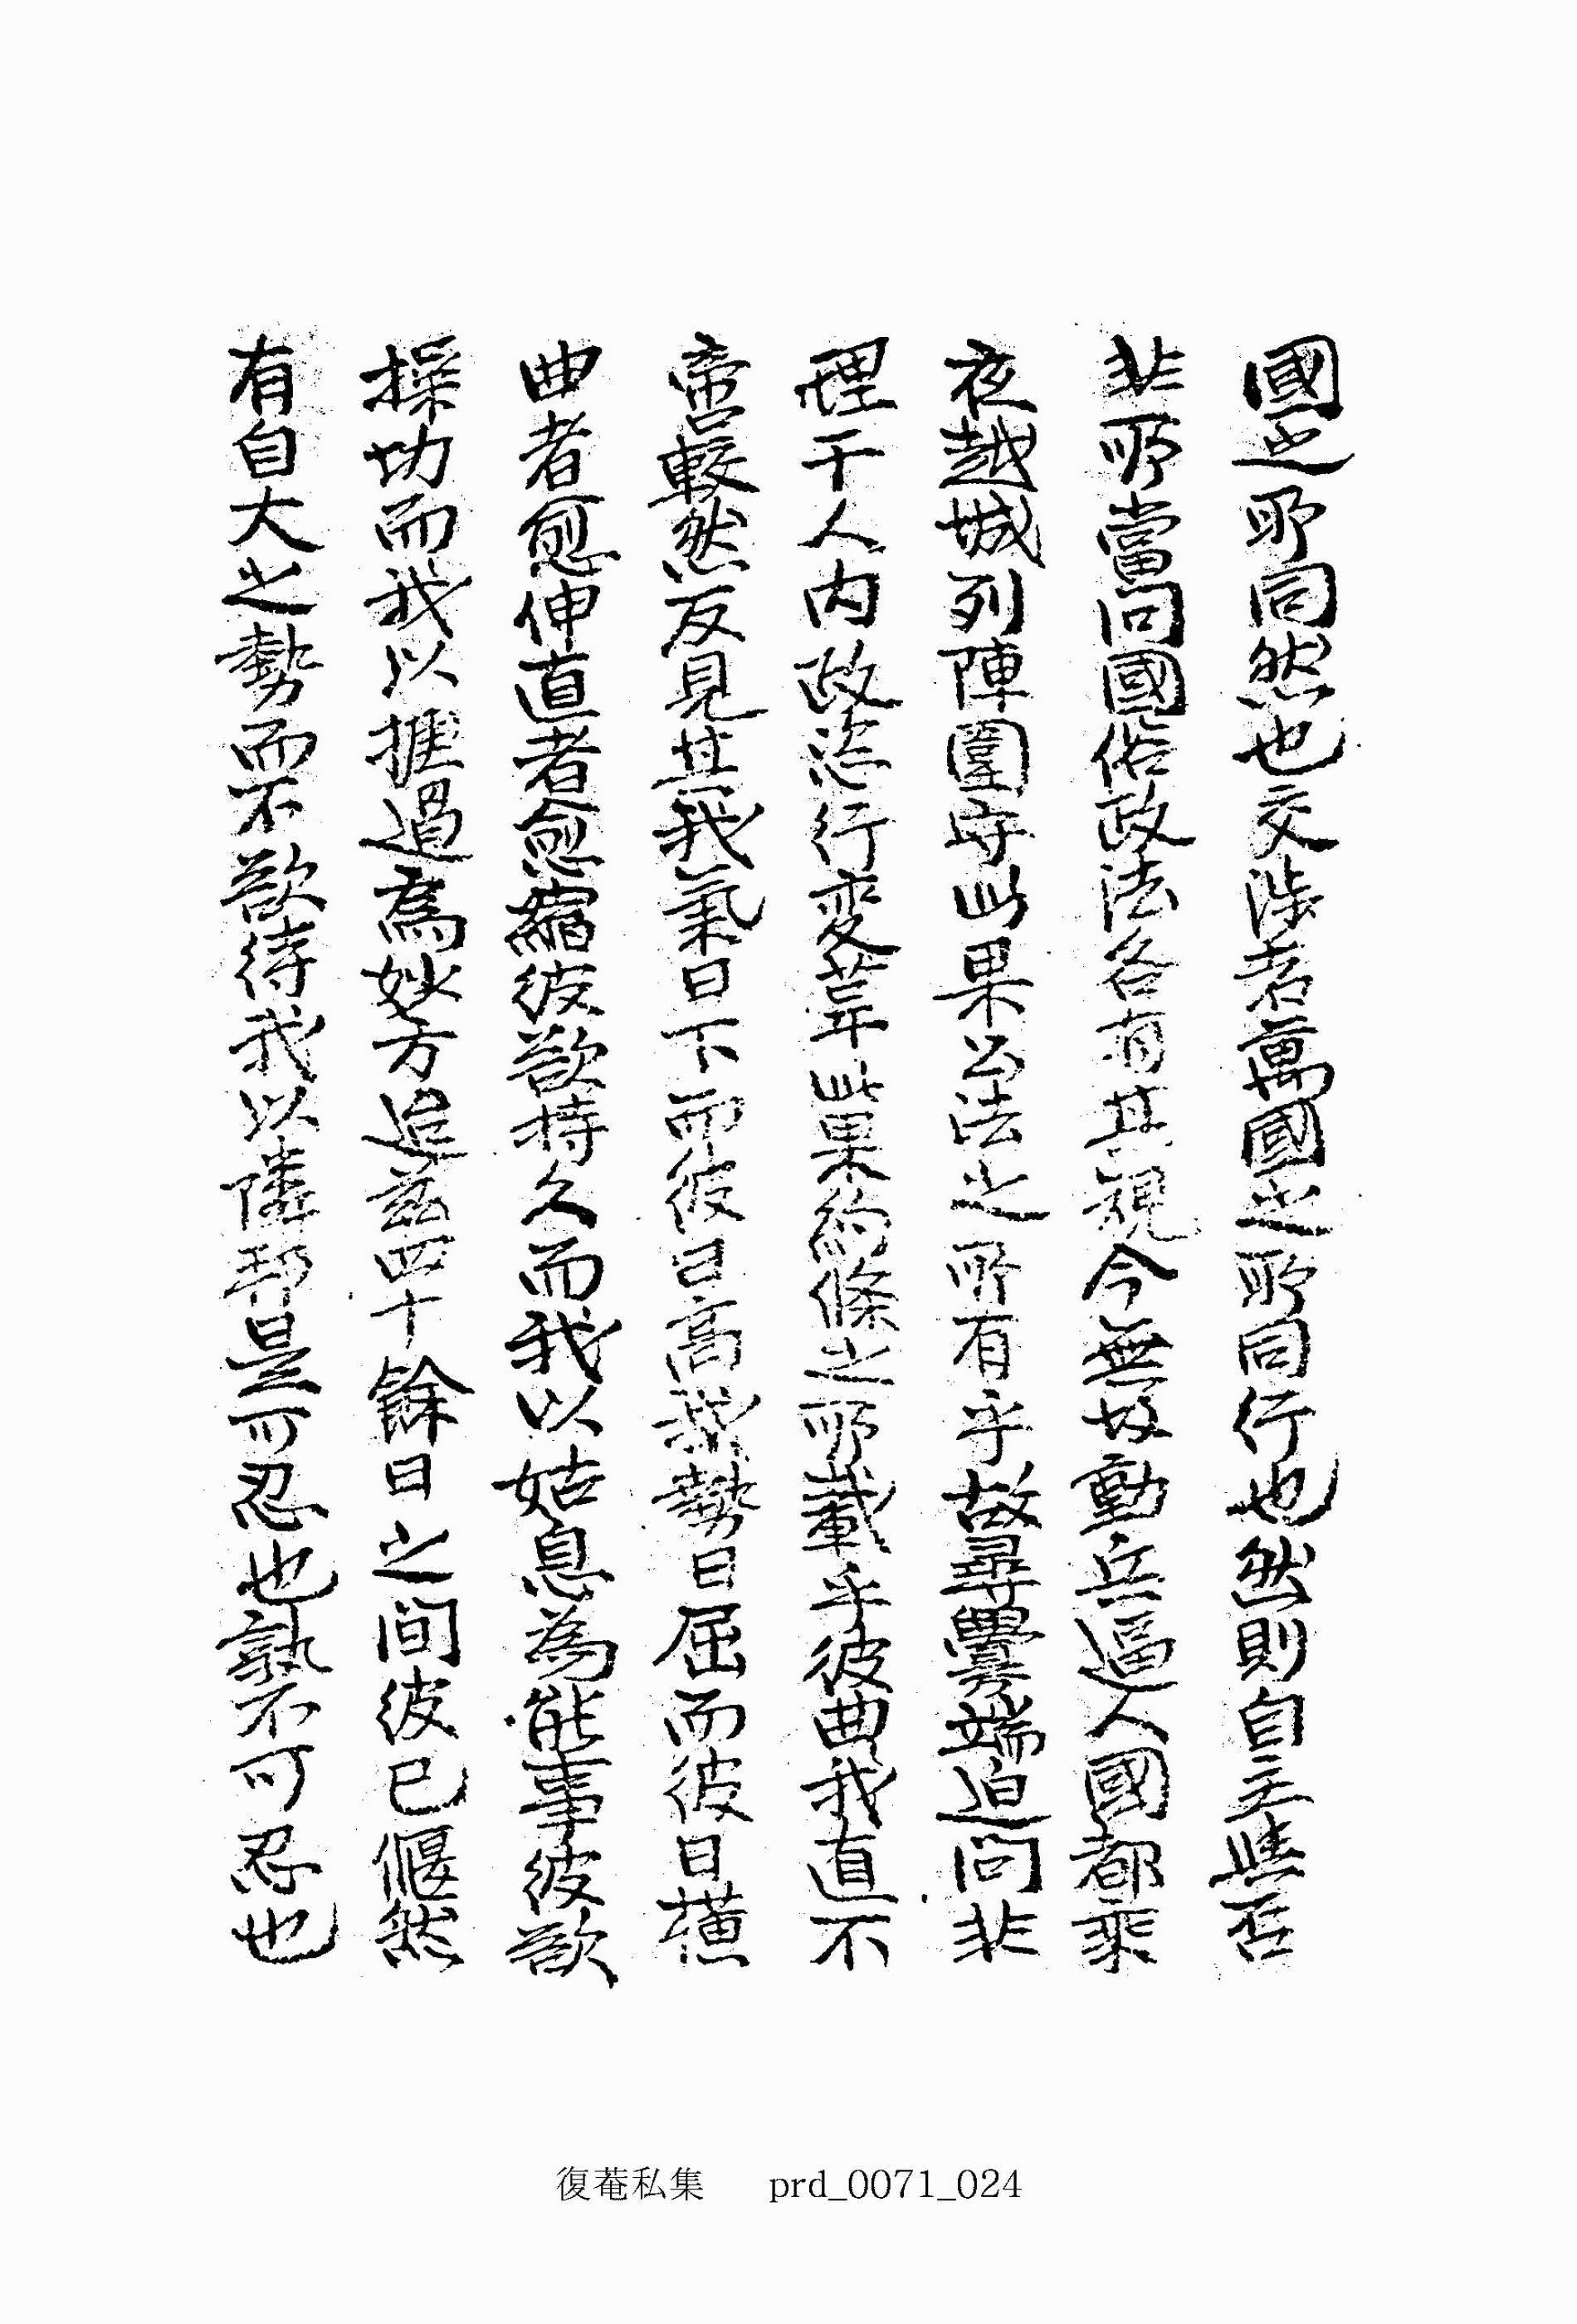 國之所同然也交涉者萬國之所同行也然則自主與否
非所當問國俗政法各有其規今無故動兵逼人國都乘
夜越城列陣圍守此果公法之所有乎故尋釁端迫問非
理干人內政恣行変革此果約條之所載乎彼曲我直不
啻較然反見其我氣日下而彼日高我勢日屈而彼日橫
曲者愈伸直者愈縮彼欲持久而我以姑息為能事彼欲
操切而我以推過為妙方迨玆四十餘日之间彼已偃然
有自大之勢而不欲待我以隣邦是可忍也孰不可忍也
復菴私集 prd_0071_024